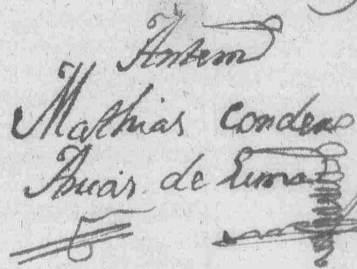 Antem
Mathias conden
de Lima